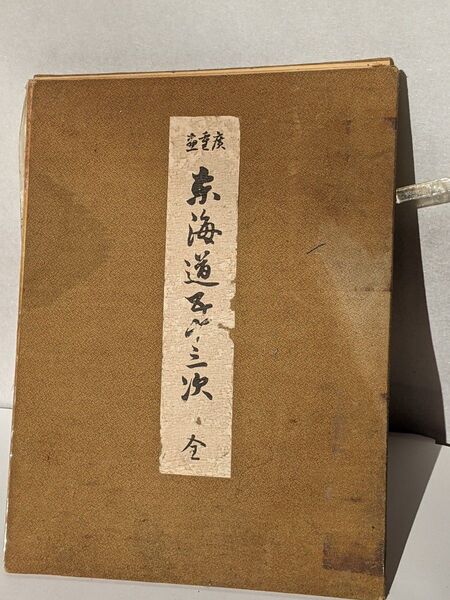 廣重畫
東海道五十三次 全